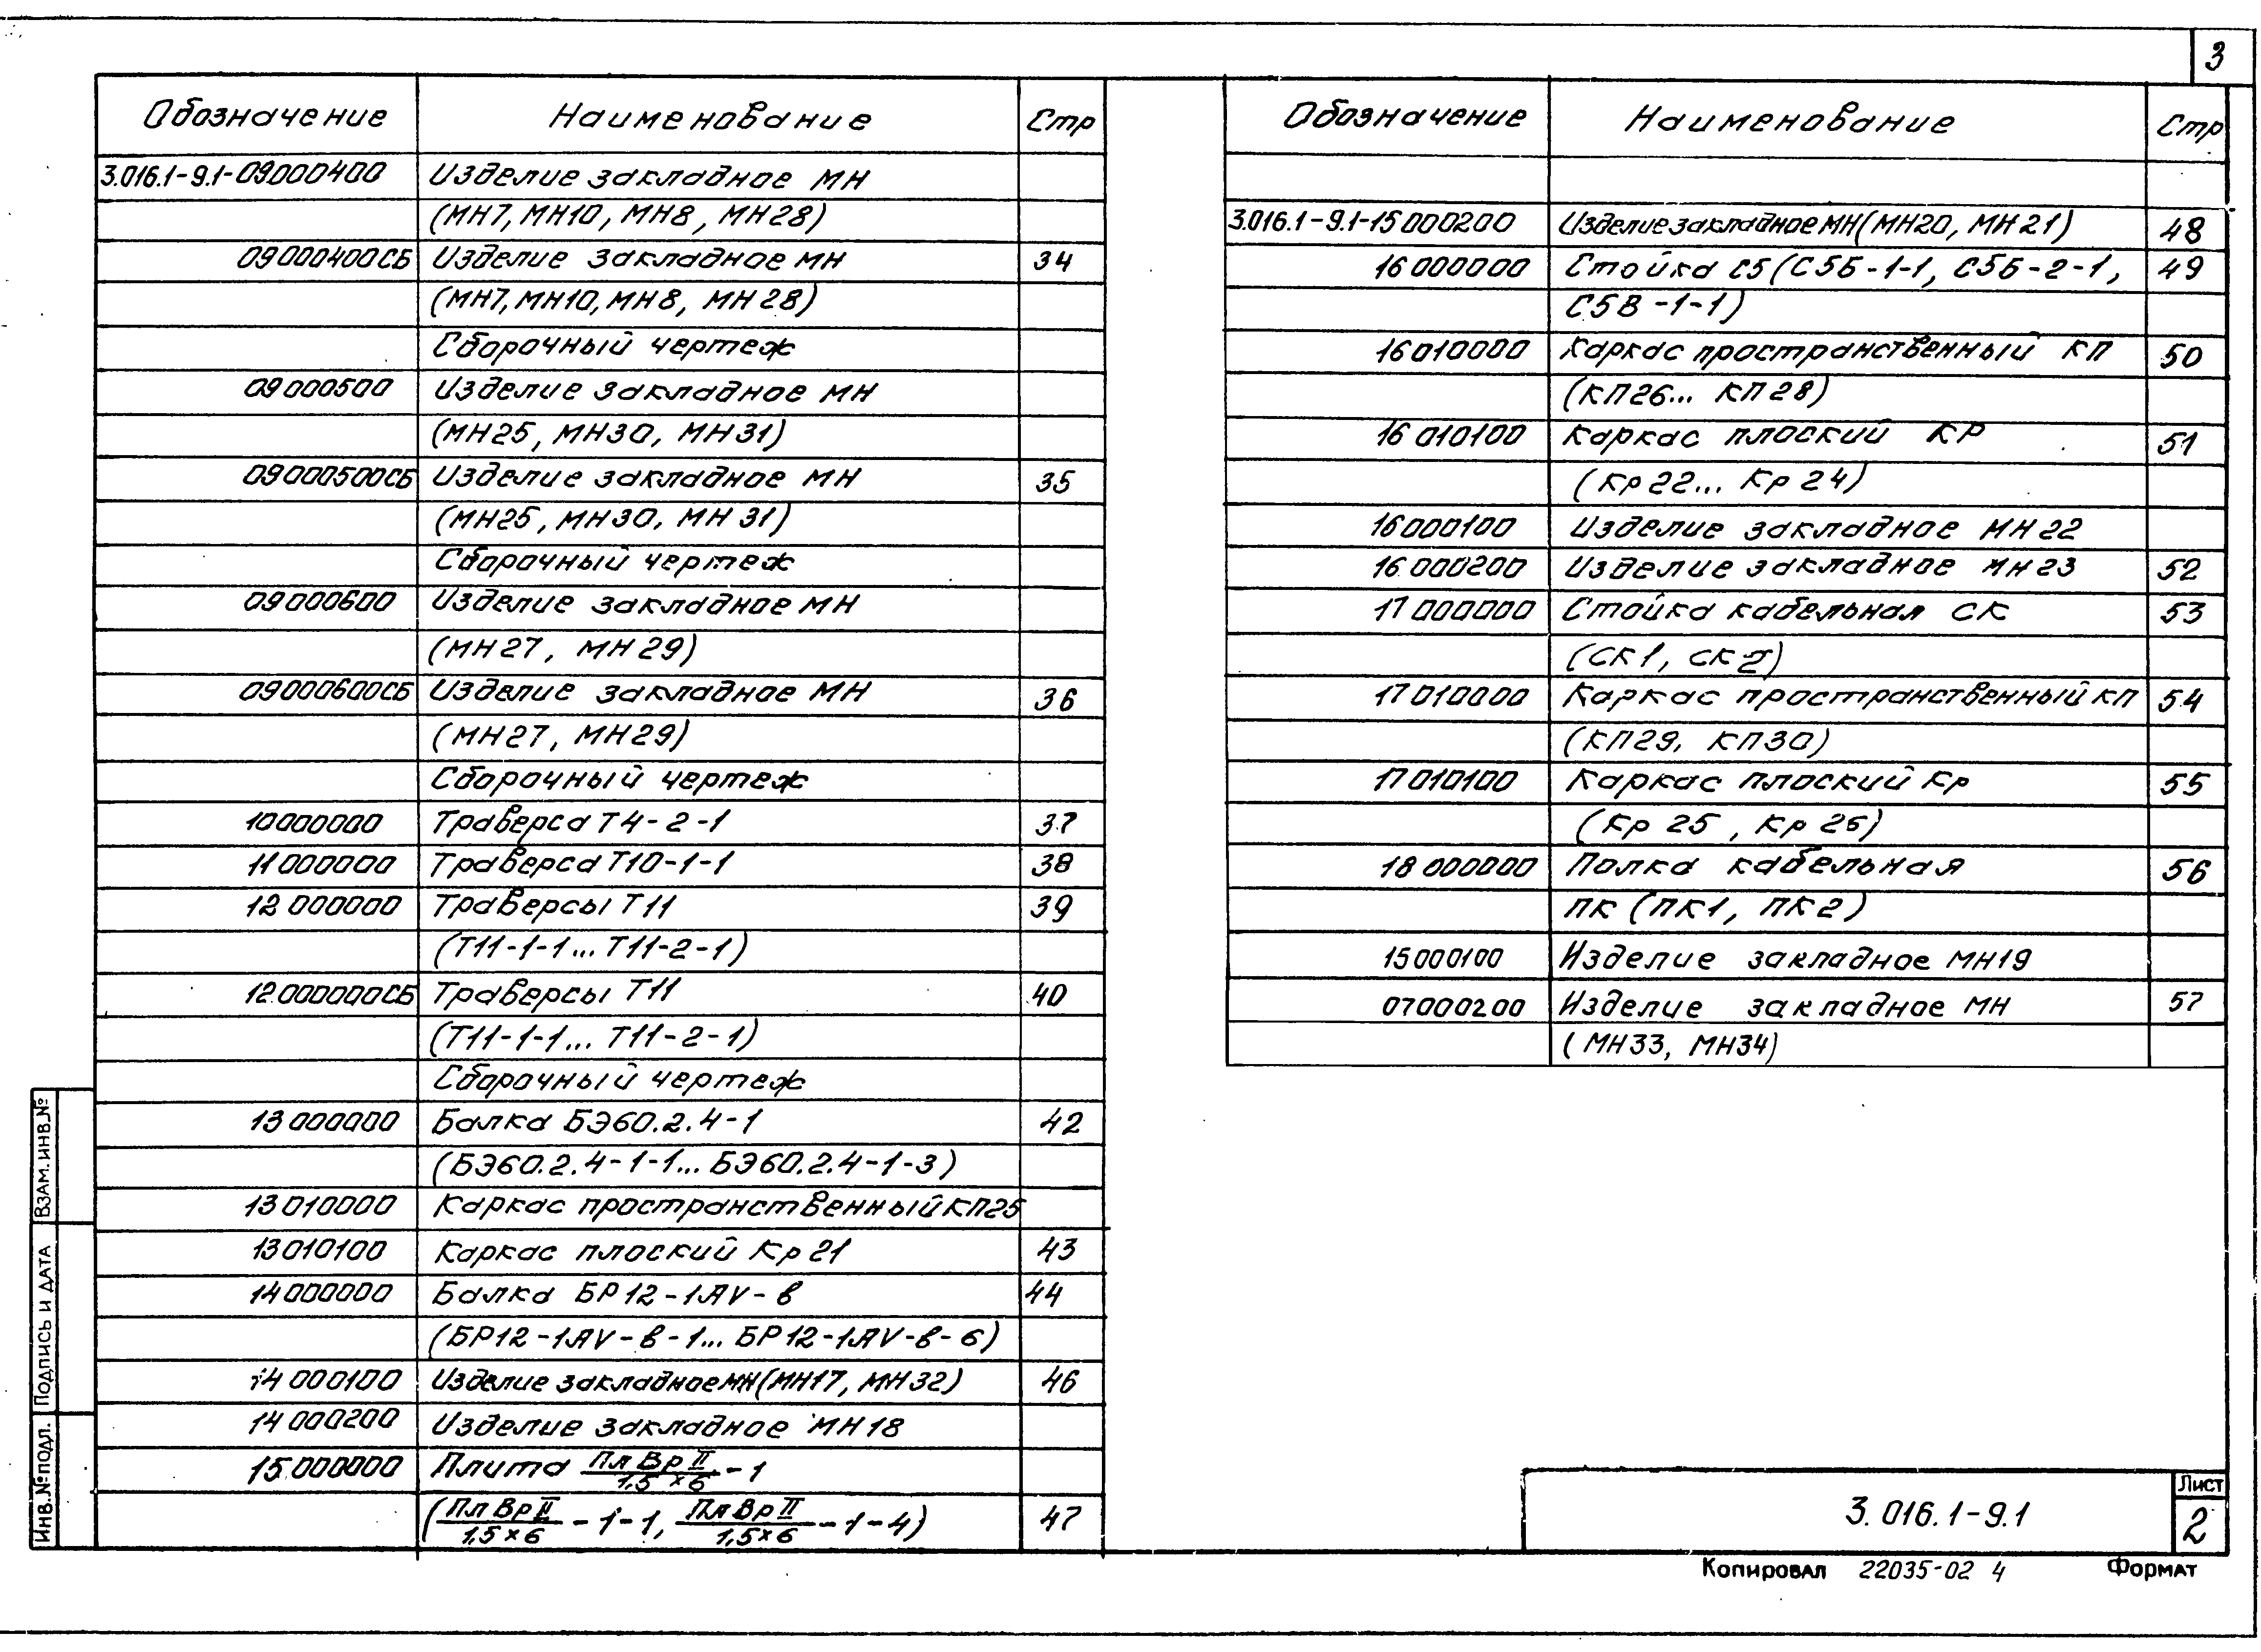 3
Обозначение Наименование Стр
3.016.1-9.1-09000400 Изделие закладное МН
(МН7, МН10, МН8, МН28)
09000400СБ Изделие закладное МН 34
(МН7, МН10, МН8, МН28)
Сборочный чертеж
09000500 Изделие закладное МН
(МН25, МН30, МН31)
09000500СБ Изделие закладное МН 35
(МН25, МН30, МН31)
Сборочный чертеж
09000600 Изделие закладное МН
(МН27, МН29)
09000600СБ Изделие закладное МН 36
(МН27, МН29)
Сборочный чертеж
10000000 Траверса Т4-2-1 37
11000000 Траверса Т10-1-1 38
12000000 Траверсы Т11 39
(Т11-1-1... Т11-2-1)
12000000СБ Траверсы Т11 40
(Т11-1-1... Т11-2-1)
Сборочный чертеж
13000000 Балка БЭ60.2.4-1 42
(БЭ60.2.4-1-1... БЭ60.2.4-1-3)
13010000 Каркас пространственный КП25
13010100 Каркас плоский Кр21 43
14000000 Балка БР12-1АV-в 44
(БР12-1АV-в-1... БР12-1АV-в-6)
14000100 Изделие закладное МН(МН17, МН32) 46
14000200 Изделие закладное МН18
15000000 Плита Пл Вр II / 1,5×6 -1
(Пл Вр II / 1,5×6 -1-1, Пл Вр II / 1,5×6 -1-4) 47
Обозначение Наименование Стр
3.016.1-9.1-15000200 Изделие закладное МН(МН20, МН21) 48
16000000 Стойка С5 (С5Б-1-1, С5Б-2-1, 49
С5В-1-1)
16010000 Каркас пространственный КП 50
(КП26... КП28)
16010100 Каркас плоский КР 51
(Кр22... Кр24)
16000100 Изделие закладное МН22
16000200 Изделие закладное МН23 52
17000000 Стойка кабельная СК 53
(СК1, СК2)
17010000 Каркас пространственный КП 54
(КП29, КП30)
17010100 Каркас плоский Кр 55
(Кр 25, Кр 26)
18000000 Полка кабельная 56
ПК (ПК1, ПК2)
15000100 Изделие закладное МН19
07000200 Изделие закладное МН 57
(МН33, МН34)
Инв.№подл. Подпись и дата Взам.инв.№
3.016.1-9.1
Лист
2
Копировал 22035-02 4 Формат